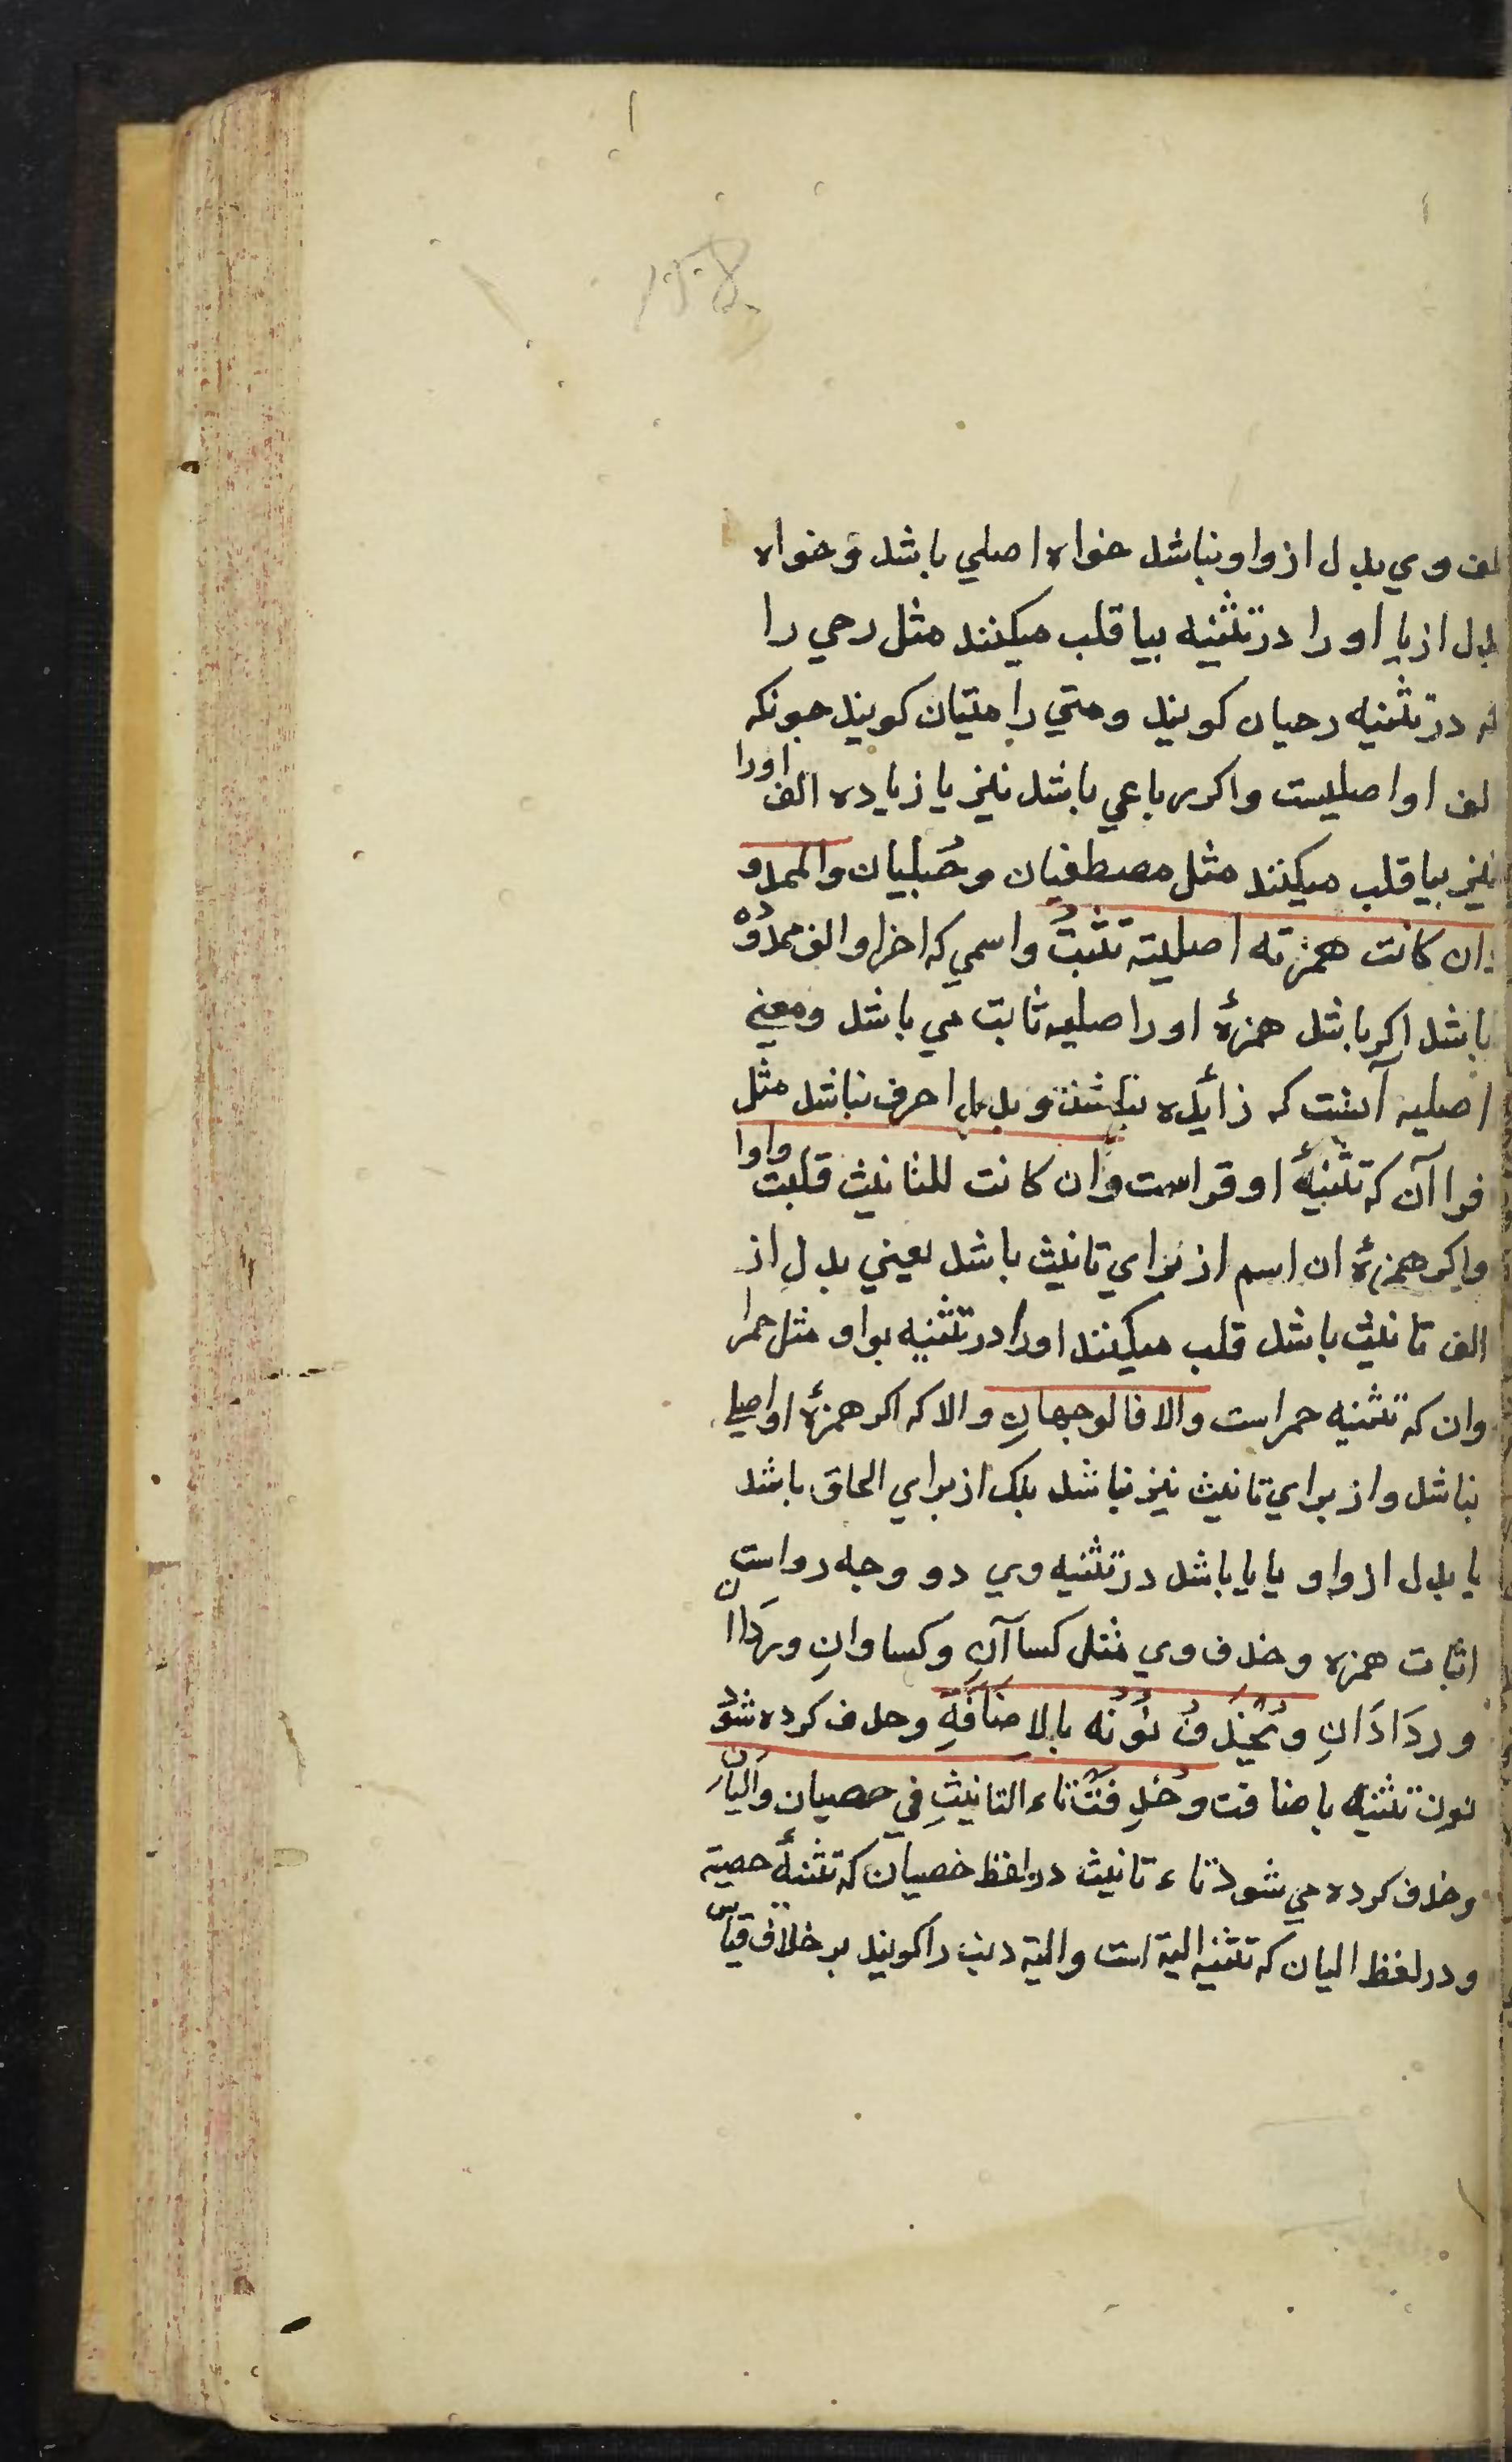 الف وي بدل از واو نباشد خواه اصلي باشد و خواه
بدل از يا او را در تثنيه بيا قلب ميكنند مثل رحي را
كه در تثنيه رحيان كويند و متي را متيان كويند جونكه
الف او اصليست و اكر رباعي باشد نيز يا زياده الف او را
نيز بيا قلب ميكنند مثل مصطفيان و حُبليان والممدو
دان كانت همزته اصلية تثبتُ و اسمي كه اخر او الف ممدُوْدْه
باشد اكر باشد همزۀ او را صليه ثابت مي باشد و معني
اصليه آنست كه زائده نباشد و بدل از حرف نباشد مثل
قرا آن كه تثنيۀ او قراست وان كانت للثانيث قلبت واوا
و اكر همزۀ ان اسم از براي تانيث باشد يعني بدل از
الف تانيث باشد قلب ميكنند او را در تثنيه بواو مثل حمرا
وان كه تثنيه حمراست والا فالوجهانِ والا كه اكر همزۀ او اصلي
نباشد و از براي تانيث نيز نباشد بلك از براي الحاق باشد
يا بدل از واو يا يا باشد در تثنيه وي دو وجه رواست
اثبات همزه و حذف وي مثل كساآنِ و كساوانِ و رِدَاان
و ردَادَانِ و يُحْذَفُ نُوْنُه بالاِضَافَةِ و حذف كرده شوْدْ
نون تثنيه باضافت و حُذِفَتْ تاء التانيثِ في خصيان و اَليان
و حذف كرده مي شود تاء تانيث در لفظ خصيان كه تثنۀ خصية
و در لفظ اليان كه تثنيه الية است و الية دنب را كويند بر خلاف قياس